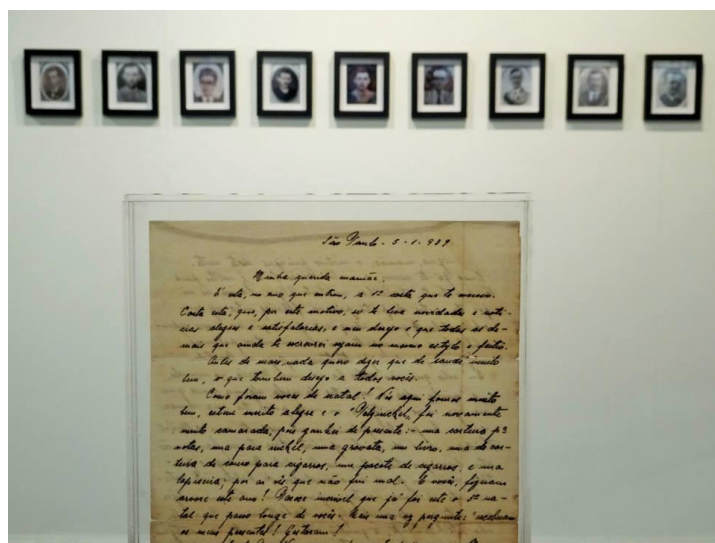 São Paulo - 5-1-939
Minha querida mamãe,
É esta, no ano que entrou, a 1ª carta que te escrevo.
Carta esta, que, por este motivo, só te leva novidades e noti-
cias alegres e satisfatorias, e meu desejo é que todas as de-
mais que ainda te escreverei sejam no mesmo estylo e feitio.
Antes de mais nada quero dizer que de saude muito
bem, o que tambem desejo a todos vocês.
Como foram voces de natal! Nós aqui fomos muito
bem, estive muito alegre e o "Pelznickel" foi novamente
muito camarada, pois ganhei de presente: - uma carteira p3
notas, uma para nickel, uma gravata, um livro, uma de car-
teira de couro para cigarros, um pacote de cigarros, e uma
lapiseira; por ai vês que não fui mal. E vocês, fizeram
arvore este ano! Parece incrivel que já foi este o 5º na-
tal que passo longe de vocês. Mais uma vez pergunto: receberam
os meus presentes! Gostaram!